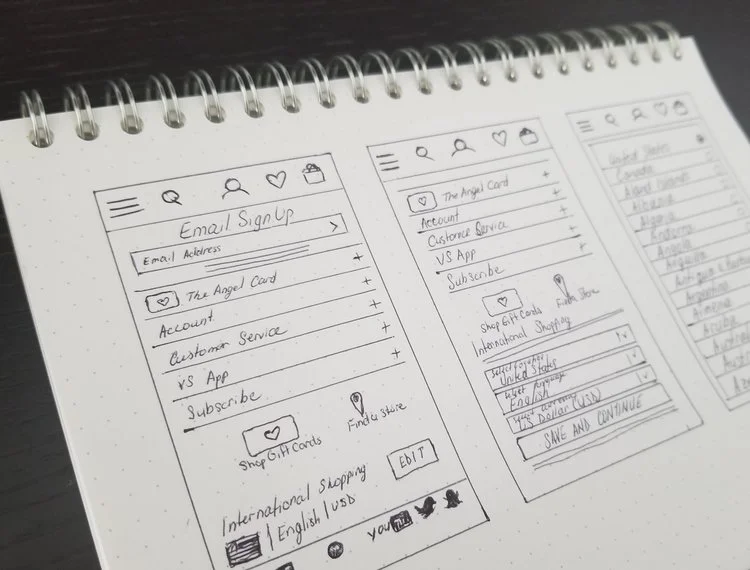 Email Sign Up
Email Address
The Angel Card
Account
Customer Service
VS App
Subscribe
Shop Gift Cards
Find a Store
International Shopping
EDIT
| English | USD
You
The Angel Card
Account
Customer Service
VS App
Subscribe
Shop Gift Cards
Find a Store
International Shopping
Select
United States
Select language
English
US Dollar (USD)
SAVE AND CONTINUE
United States
Canada
Aland Islands
Albania
Algeria
Andorra
Angola
Anguilla
Argentina
Armenia
Aruba